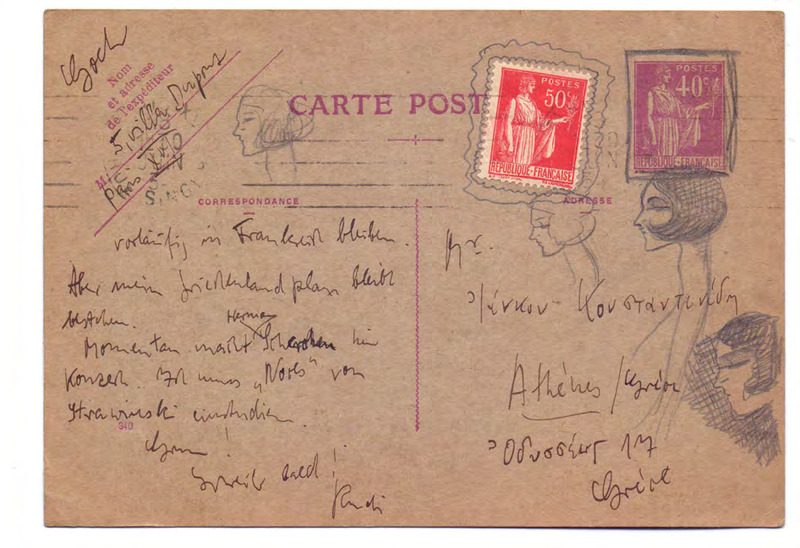 Nom
et adresse
de l'expéditeur
5, villa Dupont
Paris XVI
CARTE POST
POSTES
50c
RÉPUBLIQUE-FRANÇAISE
POSTES
40c
RÉPUBLIQUE-FRANÇAISE
CORRESPONDANCE
vorläufig in Frankreich bleiben.
Aber mein Griechenlandplan bleibt
bestehen. Herman
Momentan macht Scherchen hier
Konzert. Ich muss „Noces“ von
Strawinski einstudieren.
!
Schreib bald!
Rudi
340
ADRESSE
Mr.
Γιάνκον Κωνσταντινίδη
Athènes / Grèce
Ὀδυσσέως 17
Grèce